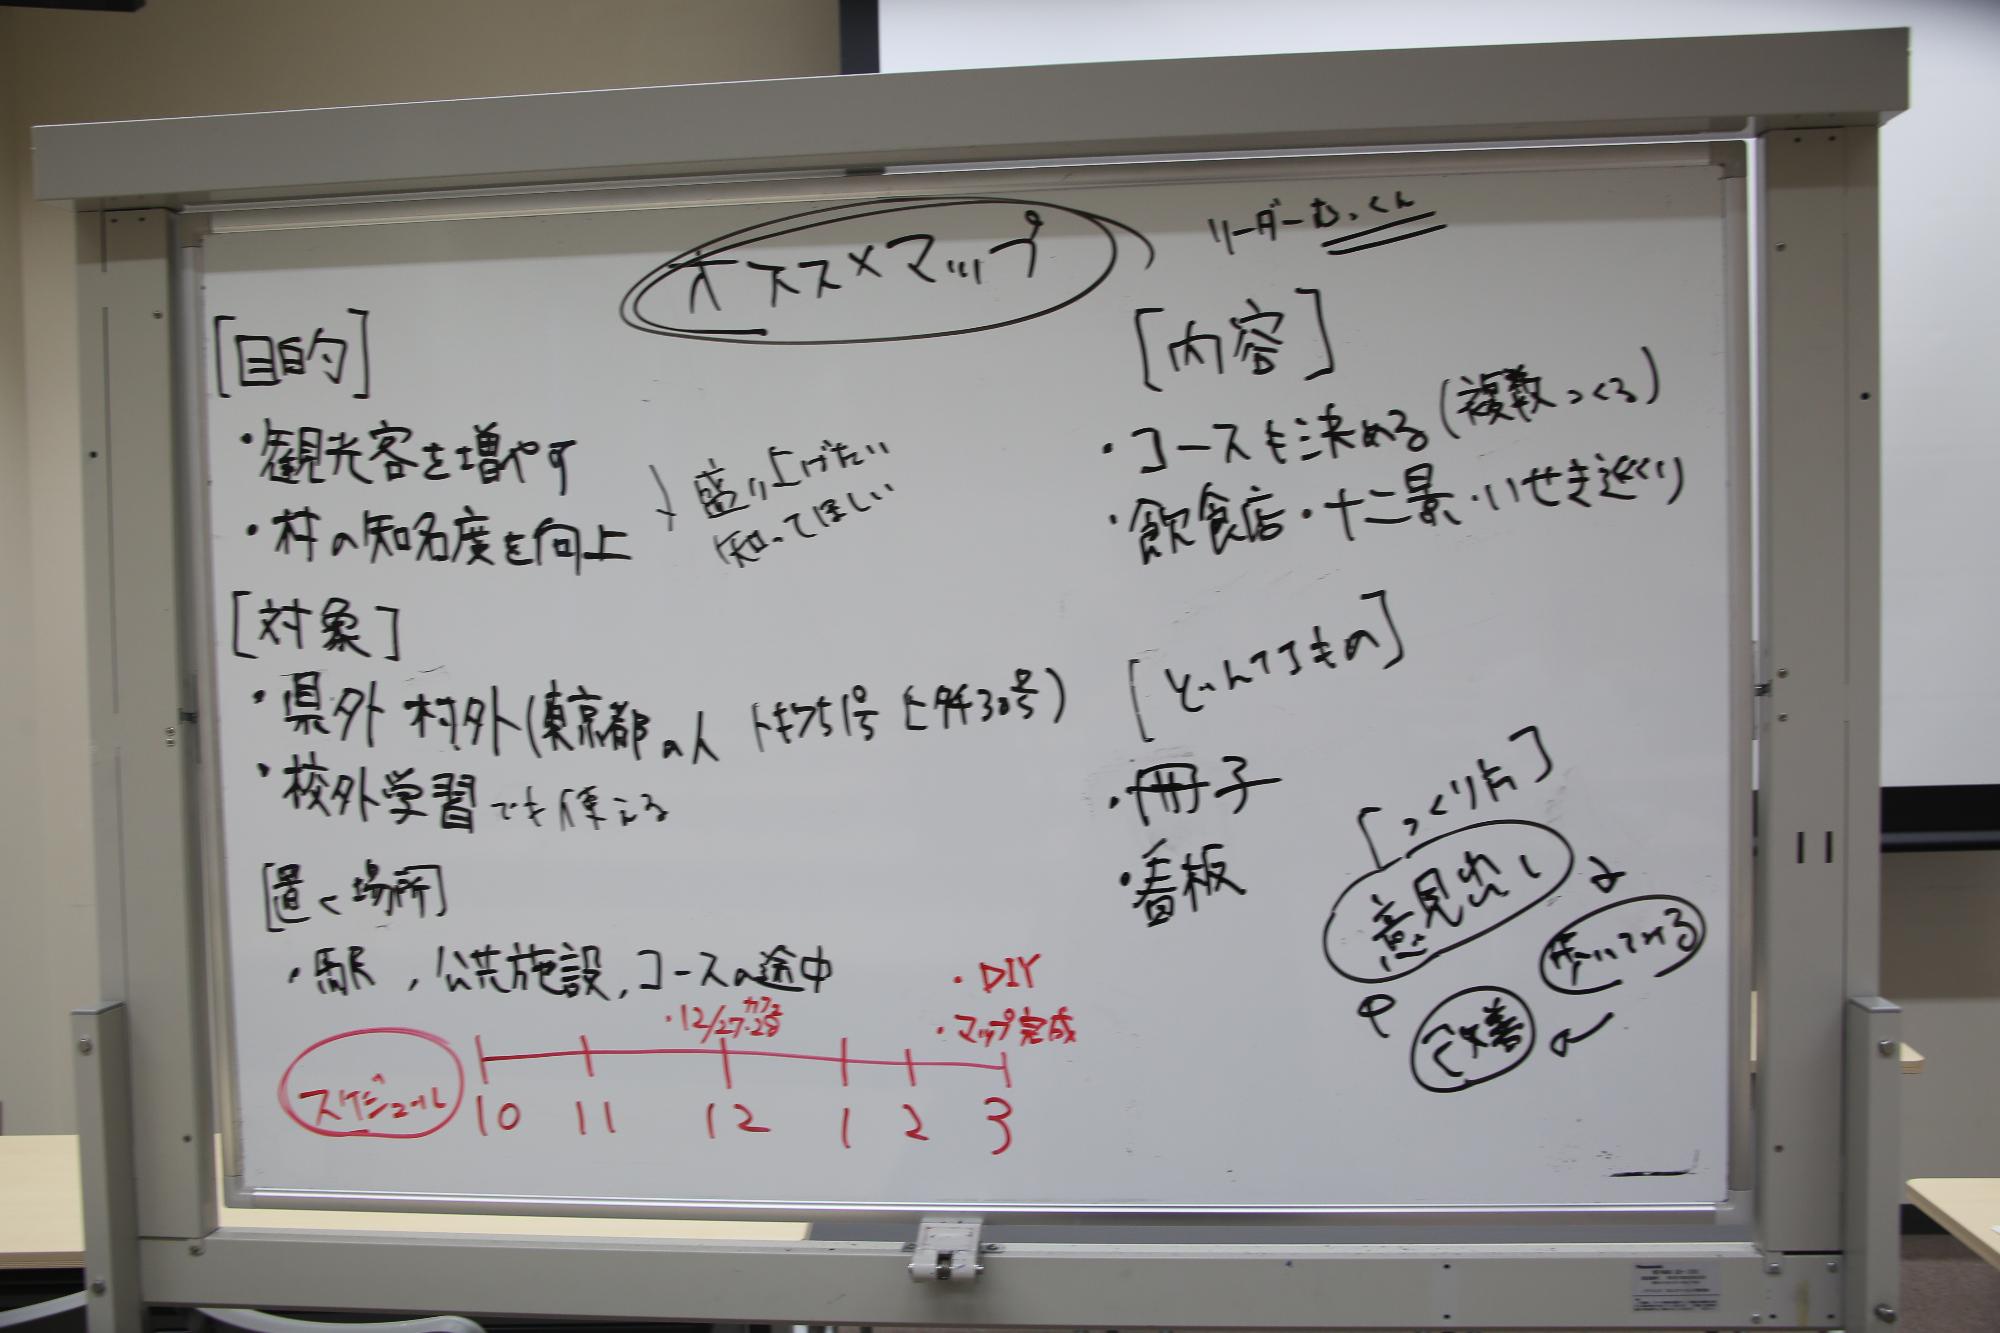 オススメマップ
リーダーむっくん
[目的]
・観光客を増やす
・村の知名度を向上
盛り上げたい
知ってほしい
[対象]
・県外 村外(東京都の人 トキ751号 ヒタチ30号)
・校外学習でも使える
[置く場所]
・駅，公共施設，コースの途中
スケジュール
10 11 12 1 2 3
・12/27・28 カフェ
・DIY
・マップ完成
[内容]
・コースを決める(複数つくる)
・飲食店・十二景・いせき巡り
・冊子
・看板
[つくり方]
意見出し
歩いてみる
改善